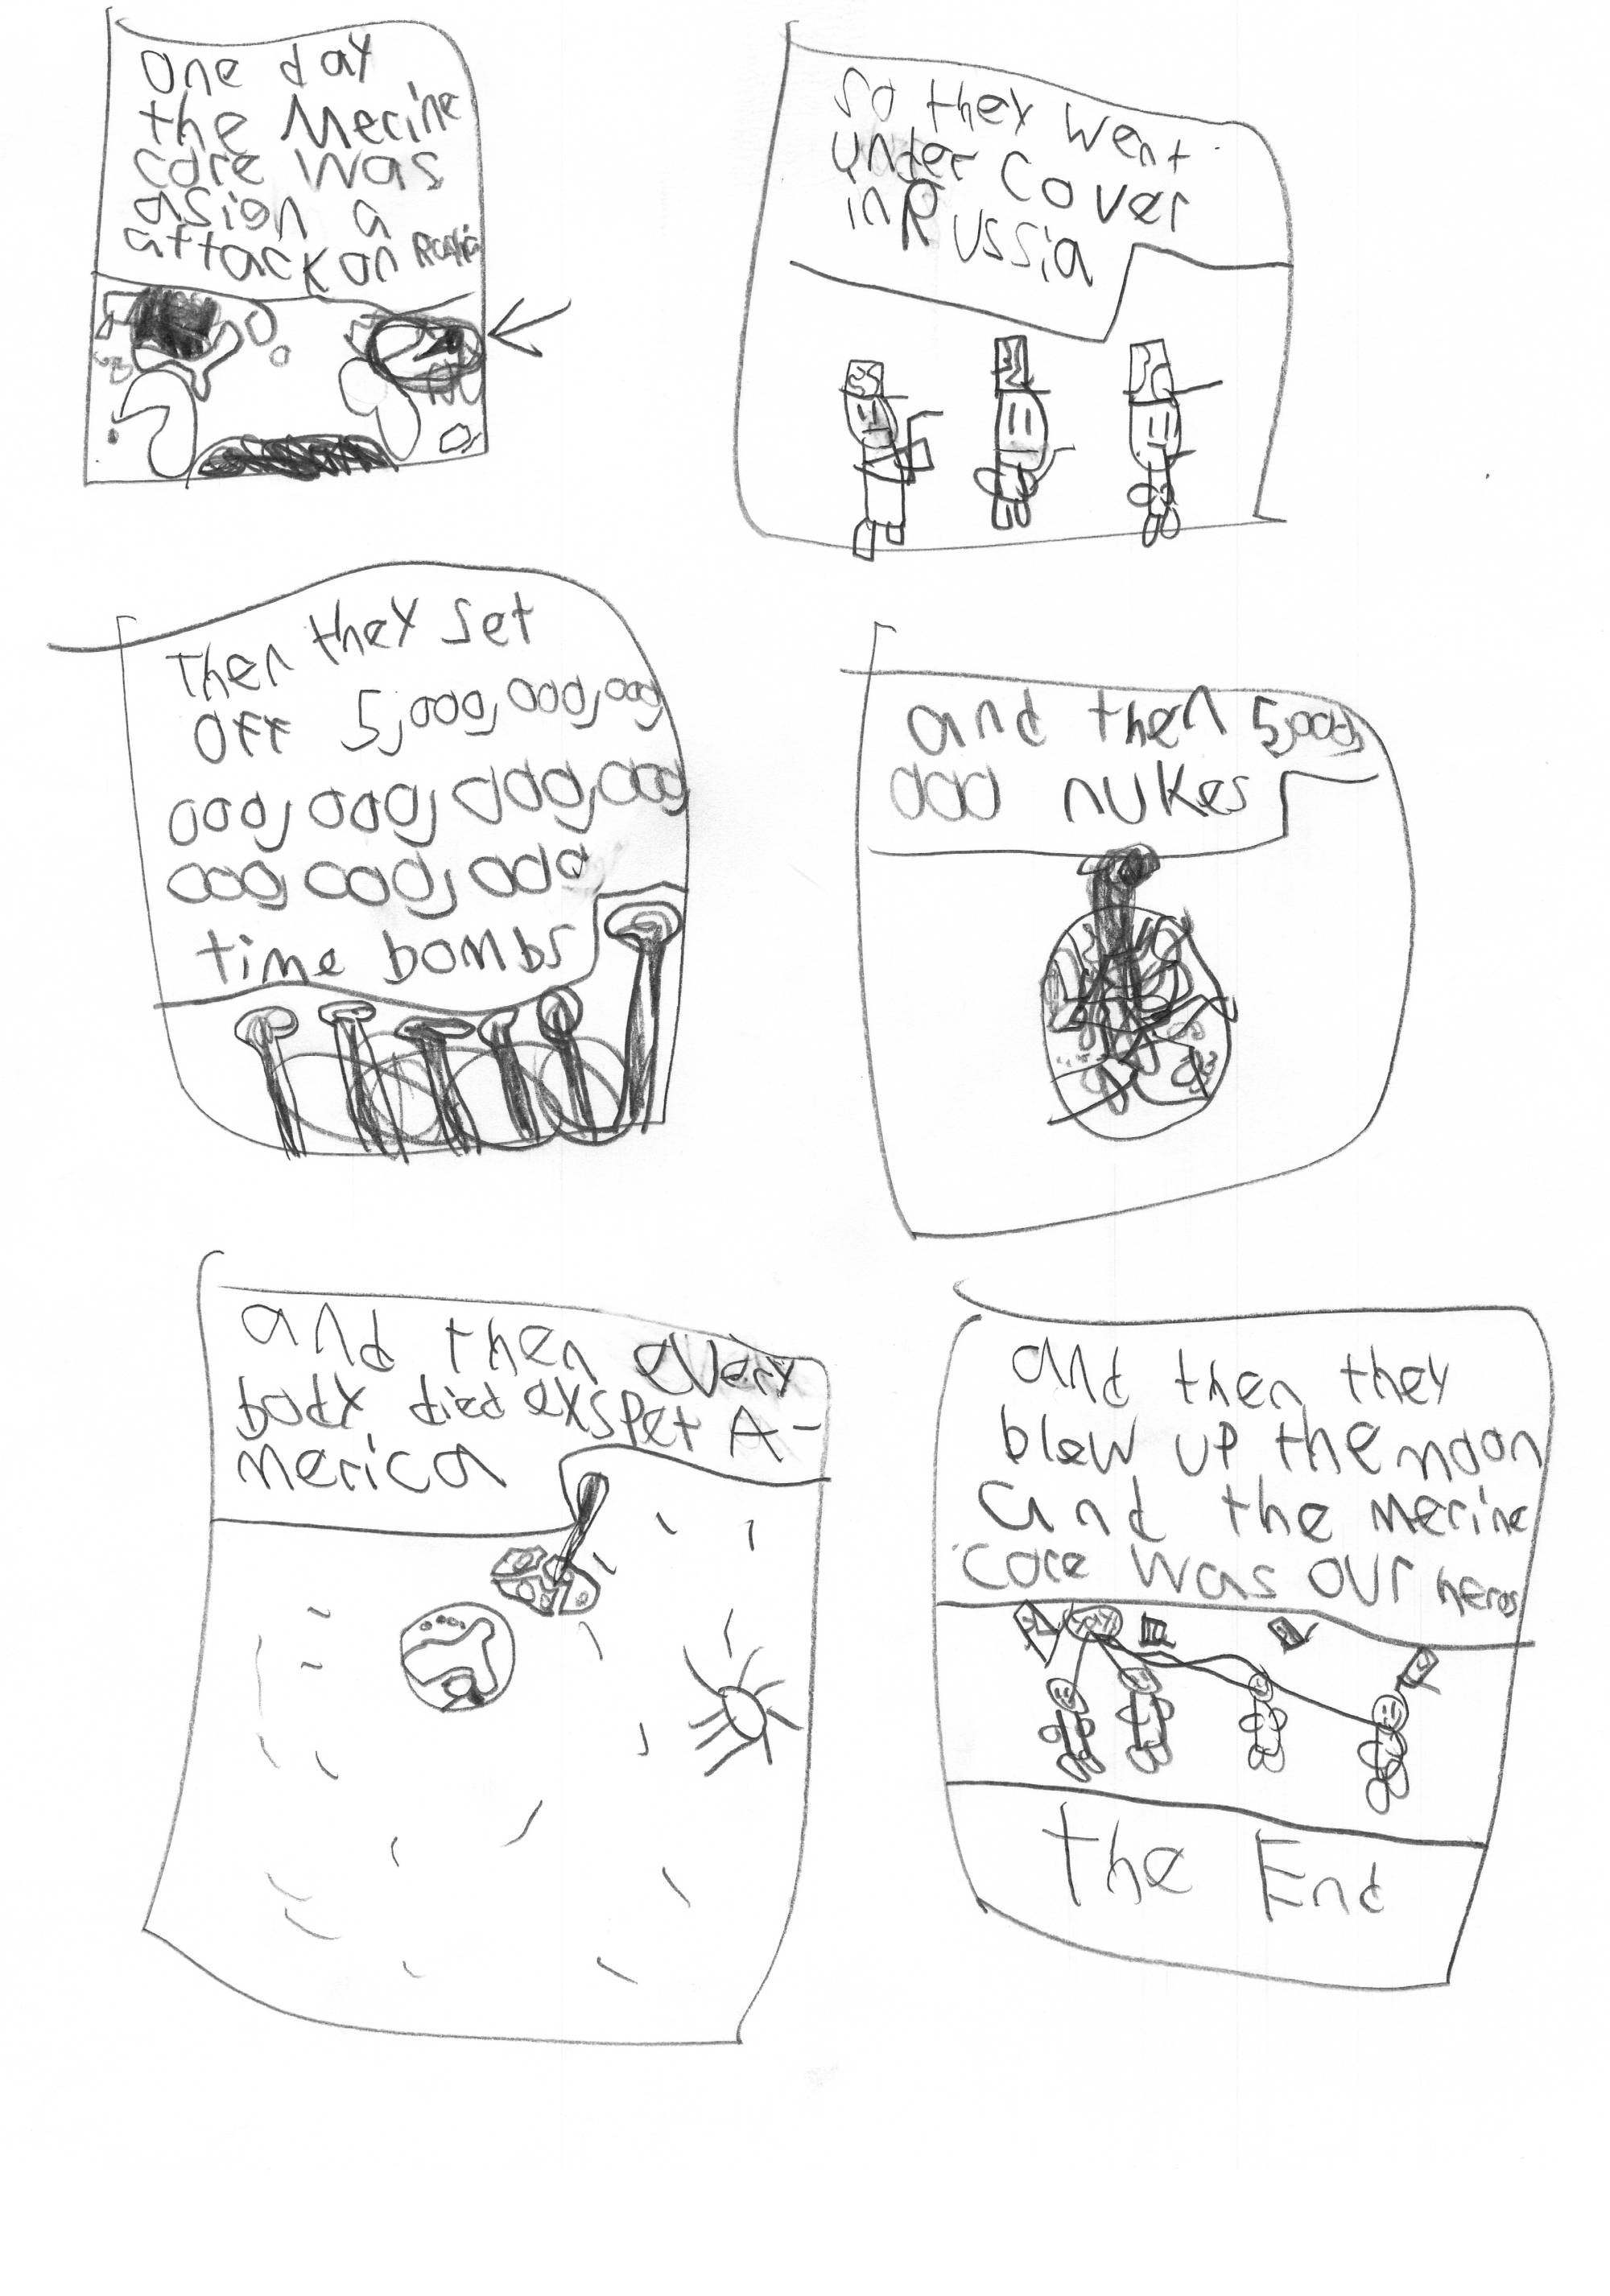 One day
the Merine
core was
asign a
attack on
So they went
under cover
in Russia
Then they set
off 5,000,000,000
000,000,000,000
000,000,000
time bombs
and then 5,000,
000 nukes
and then every
body died exspet A-
merica
and then they
blow up the moon
and the merine
core was our heros
Yay!
the End